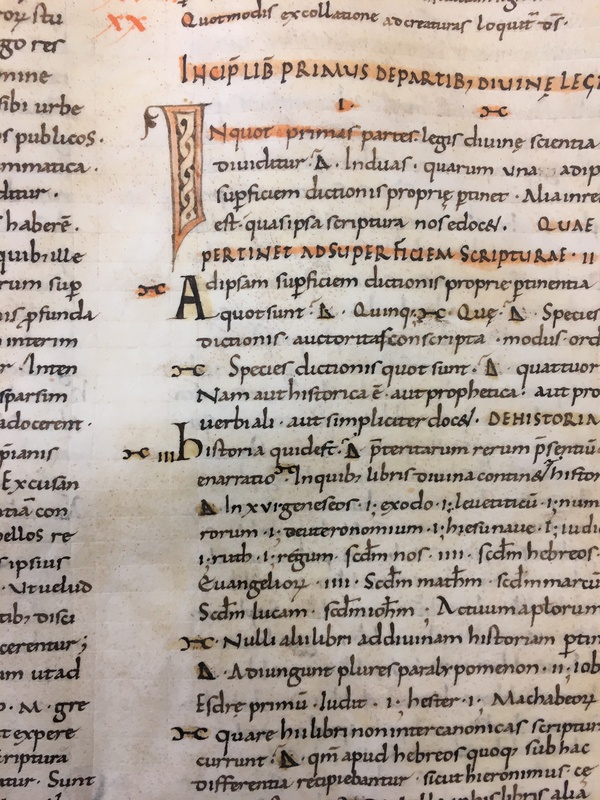 orꝝ stu
go res
mine
sibi urbe
os publicos ·
mmatica ·
ditur ·
haberē ·
quib; ille
rum sup̄
nis ꝓfunda
interim
r · Inten
sparsim
adocerent ·
pianis
Excusan
tiā con
bellos re
s ipsius
· Ut uelud
tib; disci
cerentur ;
um ut ad
o · M · gre
t expere
criptura
atur · Sunt
XX
Quotmodis ex collatione ad creaturas loquit̄ d̄s ·
INCIP̄ LIB̄ PRIMUS DE PARTIB; DIVINĘ LEGI
I ·
INquot primas partes · legis diuinę scientia
diuiditur · Δ · In duas · quarum una adip
sup̄ficiem dictionis proprię ꝑtinet · Alia in re
est · quas ipsa scriptura nos edocet · QUAE
PERTINET AD SUPERFICIEM SCRIPTURAE · II
Ad ipsam sup̄ficiem dictionis proprie ꝑtinentia
quot sunt · Δ · Quinq; Quę · Δ · Species
dictionis · auctoritas conscripta · modus · ord
Species dictionis quot sunt · Δ · quattuor
Nam aut historica ē · aut prophetica · aut pro
uerbiali · aut simpliciter docet · DE HISTORIA
III historia quid est · Δ · p̄teritarum rerum p̄sentiū
enarratio · In quib; libris diuina continet histor
Δ · In xvi geneseos · i; exodo · i; leuiticū · i; num
rorum · i; deuteronomium · i; hiesu naue · i; iudic
i; ruth · i; regum · scd̄m nos · IIII · scd̄m hebreos
Euangeliorꝝ · IIII · Scd̄m math̄m · scd̄m marcū
Scd̄m lucam · scd̄m ioh̄m ; Actuum aplorum
Nulli alii libri ad diuinam historiam ꝑtin
Δ · Adiungunt plures paralypomenon · II · iob
Esdrę primū · Iudit · i; hester · i; Machabeorꝝ
quare hii libri non inter canonicas scriptur
currunt · Δ · qm̄ apud hebreos quoq; sub hac
differentia recipiebantur · sicut hieronimus · cę
libris alia